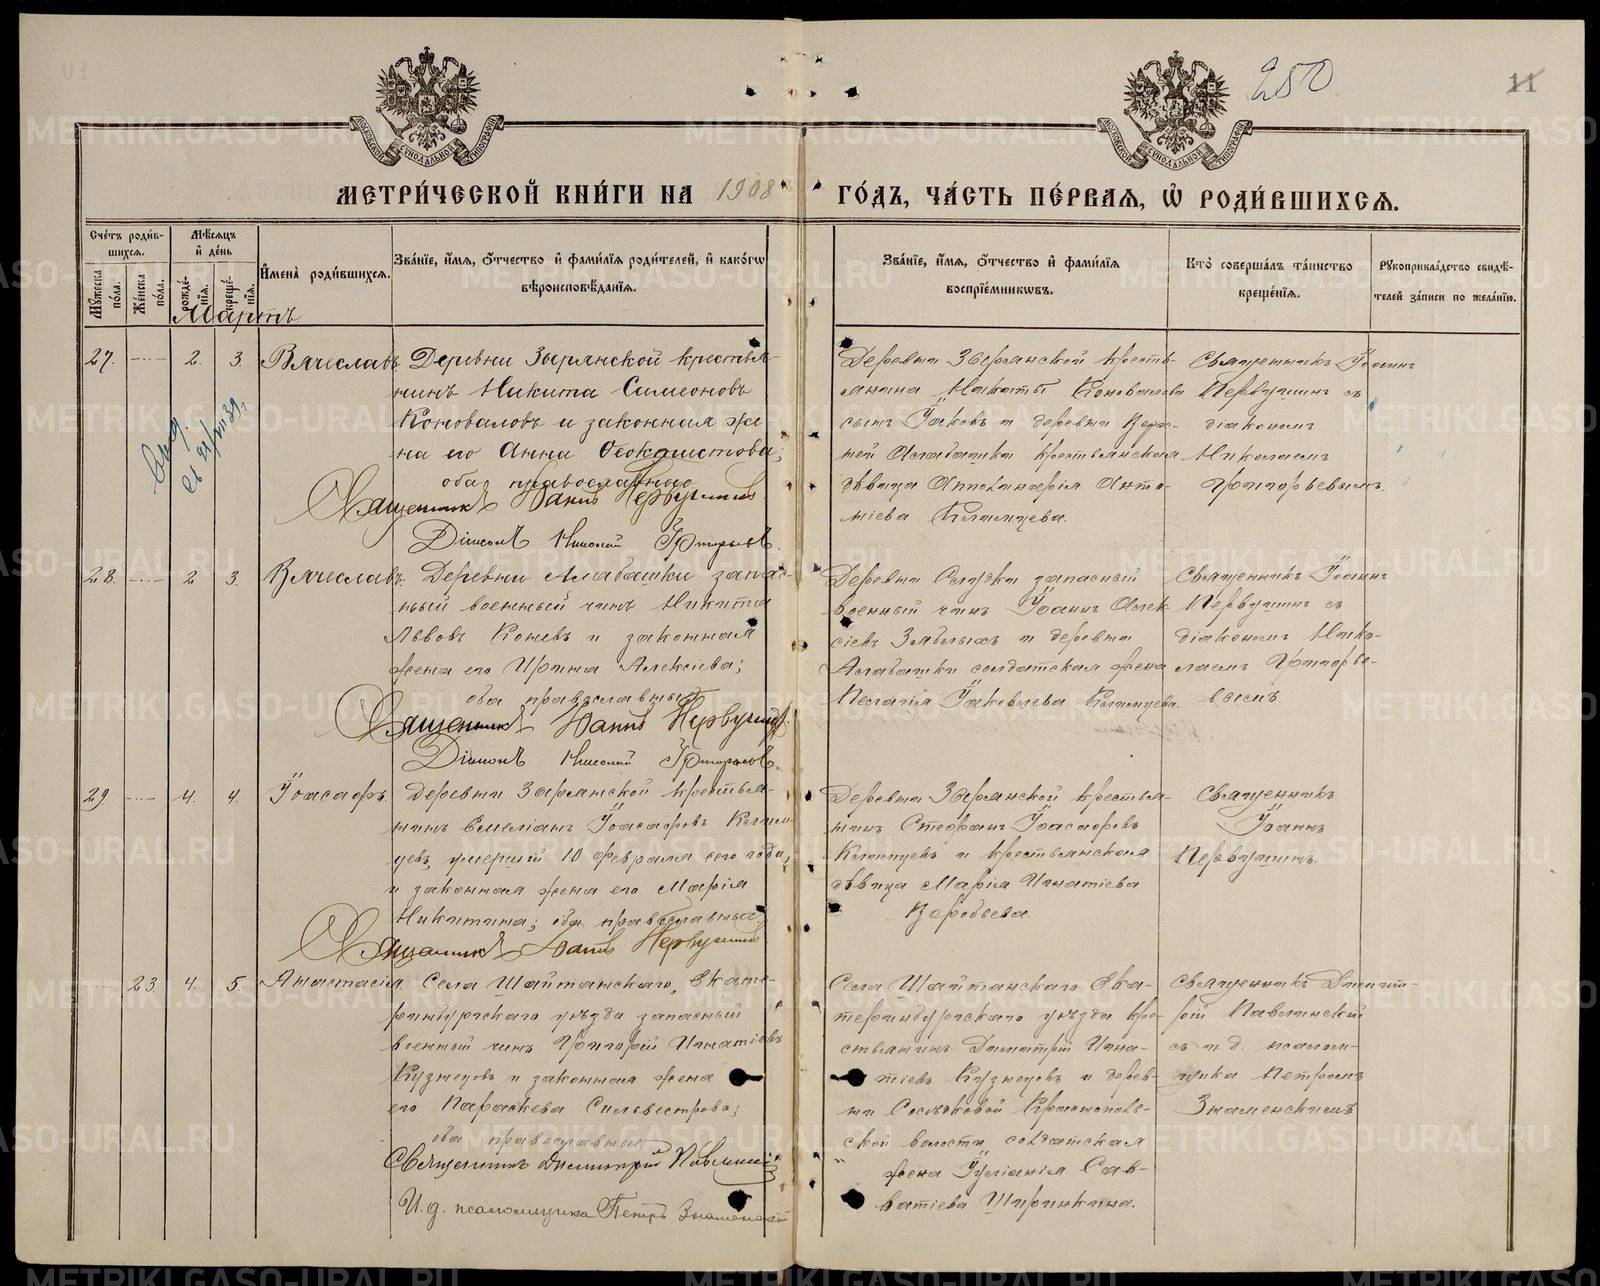 250
11
МЕТРИ́ЧЕСКОЙ КНИ́ГИ НА 1908 ГО́ДЪ, ЧА́СТЬ ПЕ́РВАЯ, Ѡ҆ РОДИ́ВШИХСЯ.
Сче́тъ роди́вшихся.
Мꙋ́жеска по́ла.
Же́нска по́ла.
Мѣ́сяцъ и҆ де́нь
рожде́нїя.
креще́нїя.
И҆мена̀ роди́вшихся.
Зва́нїе, и҆́мя, ѻ҆́тчество и҆ фами́лїя роди́телей, и҆ како́гѡ вѣроисповѣ́данїя.
Зва́нїе, и҆́мя, ѻ҆́тчество и҆ фами́лїя воспрїе́мникѡвъ.
Кто̀ соверша́лъ та́инство креще́нїя.
Рꙋкоприкла́дство свидѣ́телей за́писи по жела́нїю.
Мартъ
27. 2. 3. Вячеславъ
Деревни Зырянской крестья-
нинъ Никита Симеоновъ
Коноваловъ и законная же-
на его Анна Ѳеоктистова;
оба православные
Священникъ Іоаннъ Первушинъ
Діаконъ Николай Григорьевъ.
Деревни Зырянской кресть-
янина Никиты Коновалова
сынъ Іаковъ и деревни Верх-
ней Алабашки крестьянская
дѣвица Апполинарія Анто-
ніева
Священникъ Іоаннъ
Первушинъ съ
діакономъ
Николаемъ
Григорьевымъ.
28. 2 3. Вячеславъ.
Деревни Алабашки запас-
ный военный чинъ Никита
Львовъ Коневъ и законная
жена его Ирина Алексіева;
оба православные
Священникъ Іоаннъ Первушинъ
Діаконъ Николай Григорьевъ.
Деревни запасный
военный чинъ Іоаннъ Алек-
сіевъ и деревни
Алабашки солдатская жена
Пелагія Іаковлева
Священникъ Іоаннъ
Первушинъ съ
діакономъ Нико-
лаемъ Григорье-
вымъ
29. 4. 4. Іоасафъ.
Деревни Зырянской крестья-
нинъ Емеліанъ Іоасафовъ
умершій 10 февраля сего года,
и законная жена его Марія
Никитина; оба православные.
Священникъ Іоаннъ Первушинъ
Деревни Зырянской крестья-
нинъ Стефанъ Іоасафовъ
и крестьянская
дѣвица Марія Игнатіева
Воробьева.
Священникъ
Іоаннъ
Первушинъ.
23 4. 5 Анастасія
Села Шайтанского, Екате-
ринбургскаго уѣзда запасный
военный чинъ Григорій Игнатіевъ
Кузнецовъ и законная жена
его Параскева Сильвестрова;
оба православные
Священникъ Димитрій Павлинскій
И. д. псаломщика Петръ Знаменскій
Села Шайтанского Ека-
теринбургскаго уѣзда кре-
стьянинъ Димитрій Игна-
тіевъ Кузнецовъ и дерев-
ни
волости солдатская
жена Іуліанія Сав-
ватіева Ширинкина.
Священникъ Димит-
рій Павлинскій
съ и. д. псалом-
щика Петромъ
Знаменскимъ
METRIKI.GASO-URAL.RU